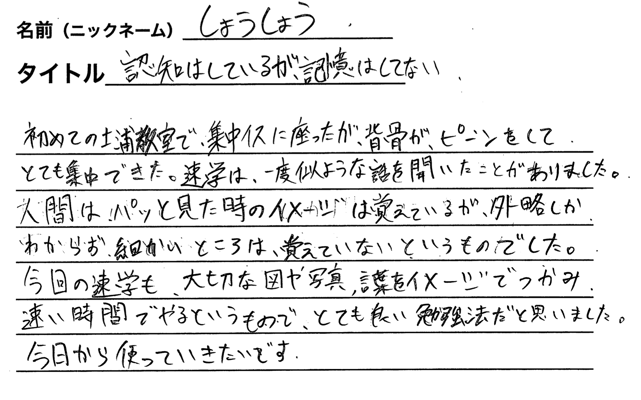 名前（ニックネーム） しょうしょう
タイトル 認知はしているが、記憶はしてない
初めての土浦教室で、集中イスに座ったが、背骨が、ピーンをして
とても集中できた。速学は、一度似ような話を聞いたことがありました。
人間は、パッと見た時のイメージは覚えているが、外略しか
わからず、細かいところは、覚えていないというものでした。
今回の速学も、大切な図や写真、言葉をイメージでつかみ、
速い時間でやるというもので、とても良い勉強法だと思いました。
今日から使っていきたいです。